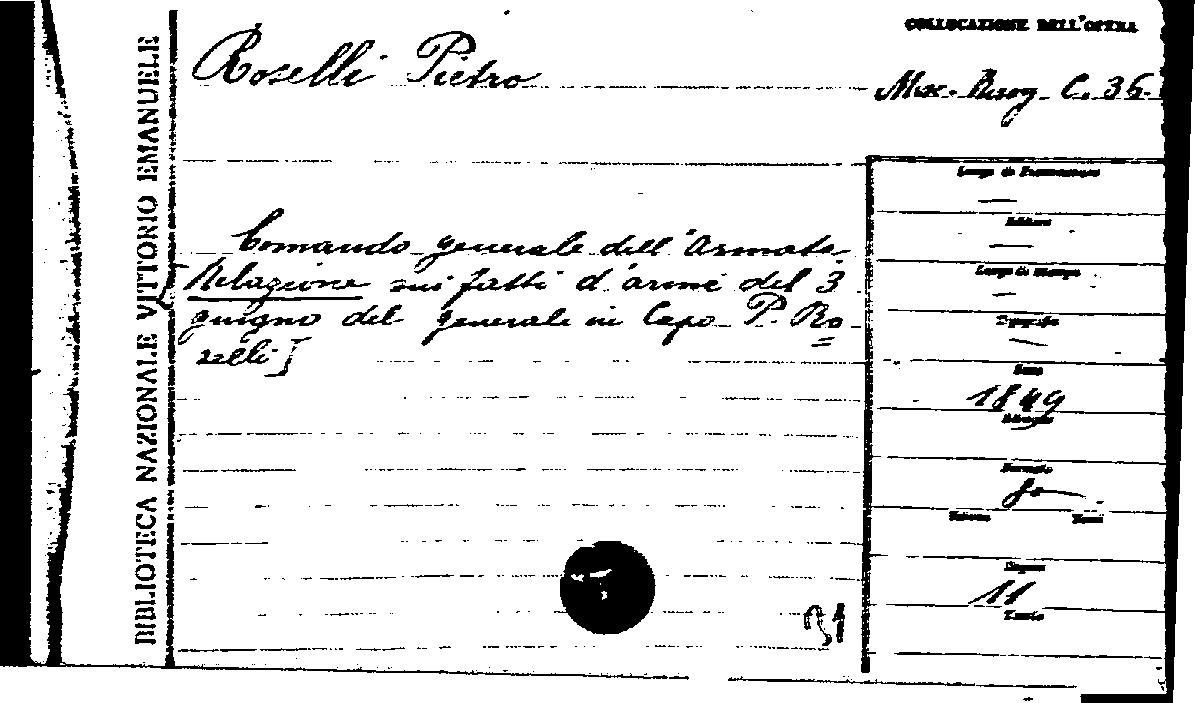 BIBLIOTECA NAZIONALE VITTORIO EMANUELE
Roselli Pietro
COLLOCAZIONE DELL'OPERA
Misc. Risorg. C. 36.
Comando generale dell'Armata
Relazione sui fatti d'arme del 3
giugno del generale in Capo P. Ro
selli]
Luogo di Pubblicazione
—
Editore
—
Luogo di stampa
—
Tipografia
—
Data
1849
Edizione
Formato
fo
Volume Tomi
Pagine
11
Tavole
31